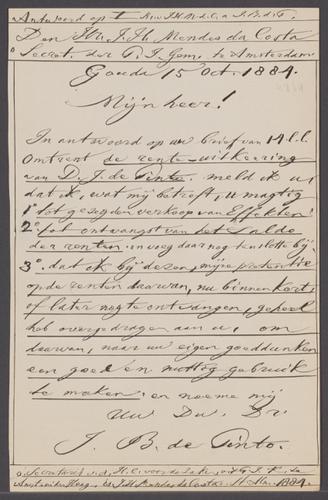 Antwoord op I Mr. J.H.M.d.C. a J.B.d.P.
Den Hr. J. H. Mendes da Costa
Secret. der P. I. Gem. te Amsterdam
Gouda 15 Oct. 1884.
Mijnheer!
In antwoord op uw brief van 14 l.l.
omtrent de rente-uitkeering
van D. J. de Pinto. meld ik u,
dat ik, wat mij betreft, u magtig
1° tot gezegden verkoop van Effekten!
2° tot ontvangst van het Saldo
der renten: en voeg daar nog ten slotte bij
3° dat ik bij dezen, mijne pretentie
op de renten daarvan, nu binnenkort,
of later nog te ontvangen, geheel
heb overgedragen aan u, om
daarvan, naar uw eigen goeddunken
een goed en nuttig gebruik
te maken: en noeme mij
Uw Dw. Dr.
J. B. de Pinto.
Secretaris v. d. H. C. voor de
Haag J H Mendes da Costa 1884.